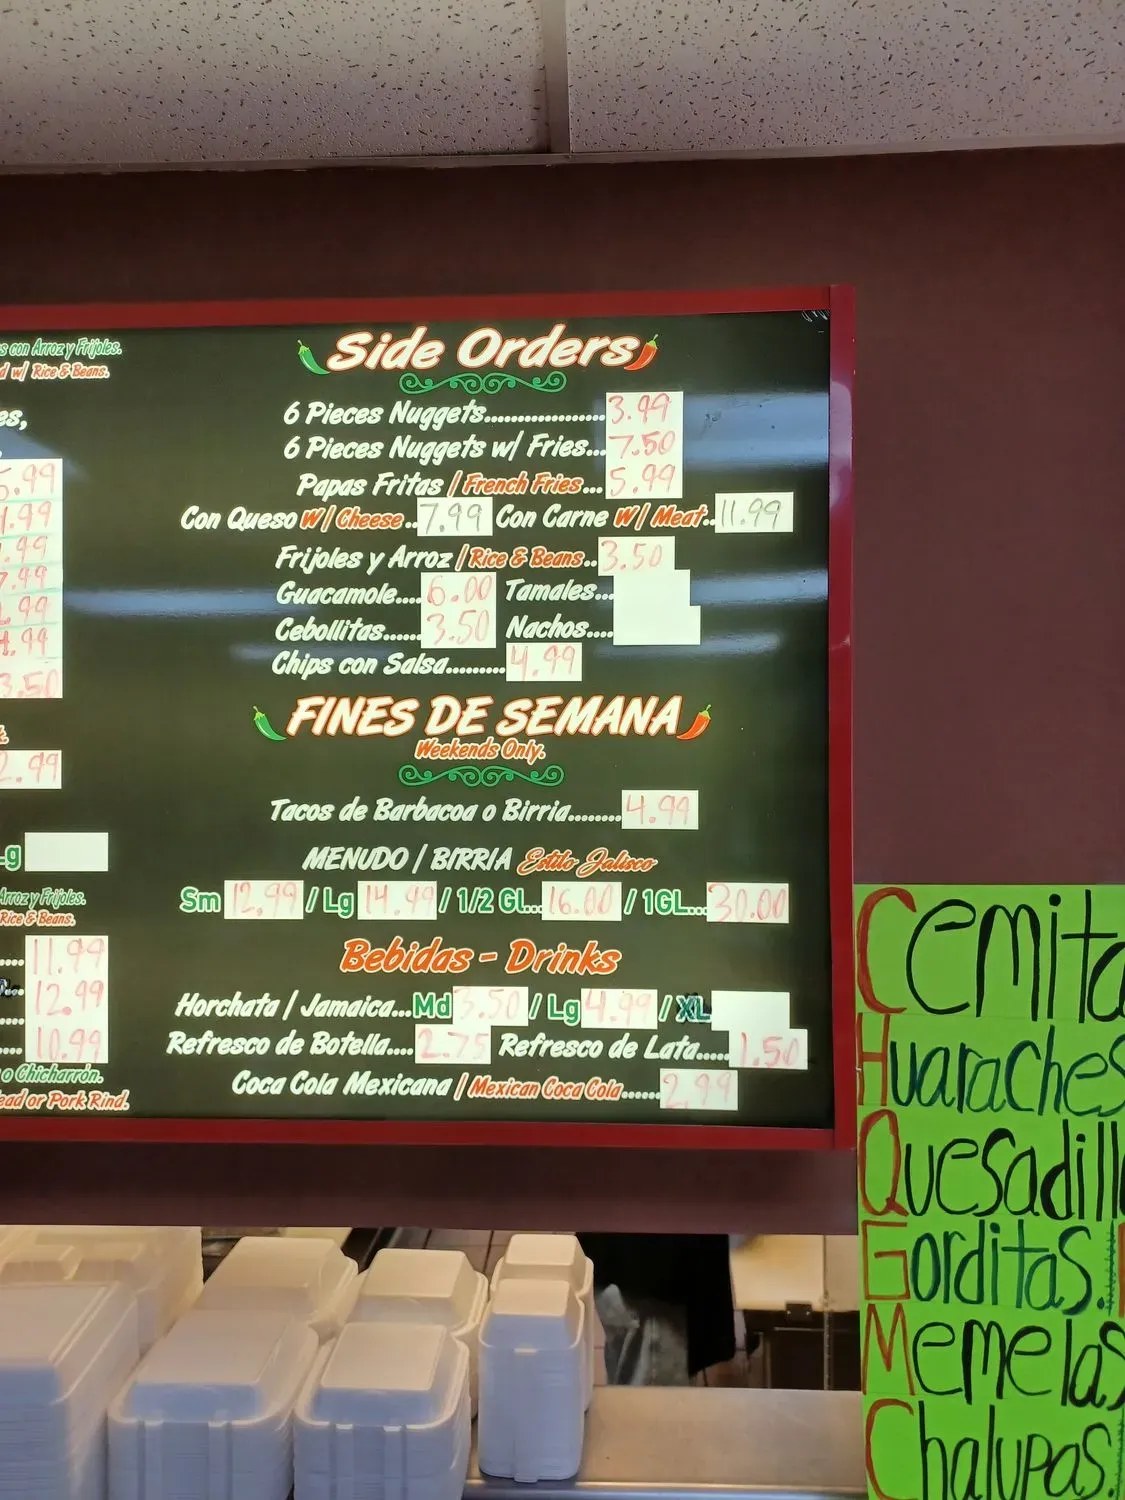 s con Arroz y Frijoles.
d w/ Rice & Beans.
es,
5.99
.99
.99
7.99
.99
4.99
3.50
2.99
Lg
Arroz y Frijoles.
Rice & Beans.
11.99
12.99
10.99
o Chicharrón.
ead or Pork Rind.
Side Orders
6 Pieces Nuggets.................. 3.99
6 Pieces Nuggets w/ Fries... 7.50
Papas Fritas / French Fries... 5.99
Con Queso W/ Cheese.. 7.99 Con Carne W/ Meat.. 11.99
Frijoles y Arroz / Rice & Beans.. 3.50
Guacamole.... 6.00 Tamales...
Cebollitas...... 3.50 Nachos....
Chips con Salsa......... 4.99
FINES DE SEMANA
Weekends Only.
Tacos de Barbacoa o Birria........ 4.99
MENUDO / BIRRIA Estilo Jalisco
Sm 12.99 / Lg 14.99 / 1/2 Gl... 16.00 / 1GL... 30.00
Bebidas - Drinks
Horchata / Jamaica... Md 3.50 / Lg 4.99 / XL
Refresco de Botella.... 2.75 Refresco de Lata..... 1.50
Coca Cola Mexicana / Mexican Coca Cola...... 2.99
Cemita
Huaraches
Quesadill
Gorditas.
Memelas
Chalupas.